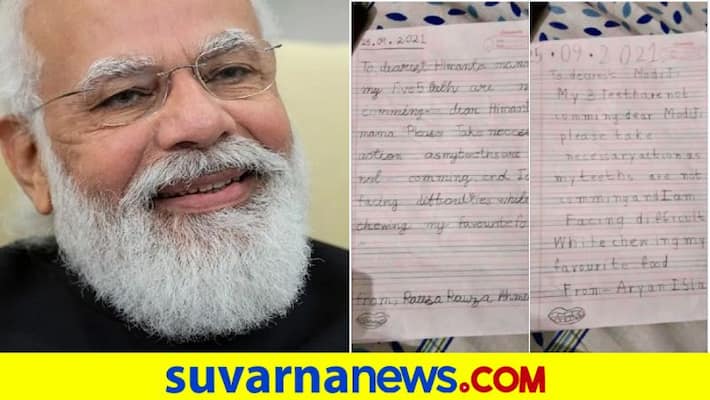 25.09.2021
To dearest Himanta mama
my Five5 teeth are n
comming. dear Himant
mama Please Take necces
action as my tooths are
not comming and I a
facing difficulties while
chewing my favourite fo
From, Rawza Rawza Ahme
5.09.2021
To dearest Modi Ji
My 3 Teeth are not
comming dear Modi Ji
please take
necessary action as
my teeths are not
comming and I am
Facing difficult
While chewing my
favourite food
From- Aryan Isla
suvarnanews.COM